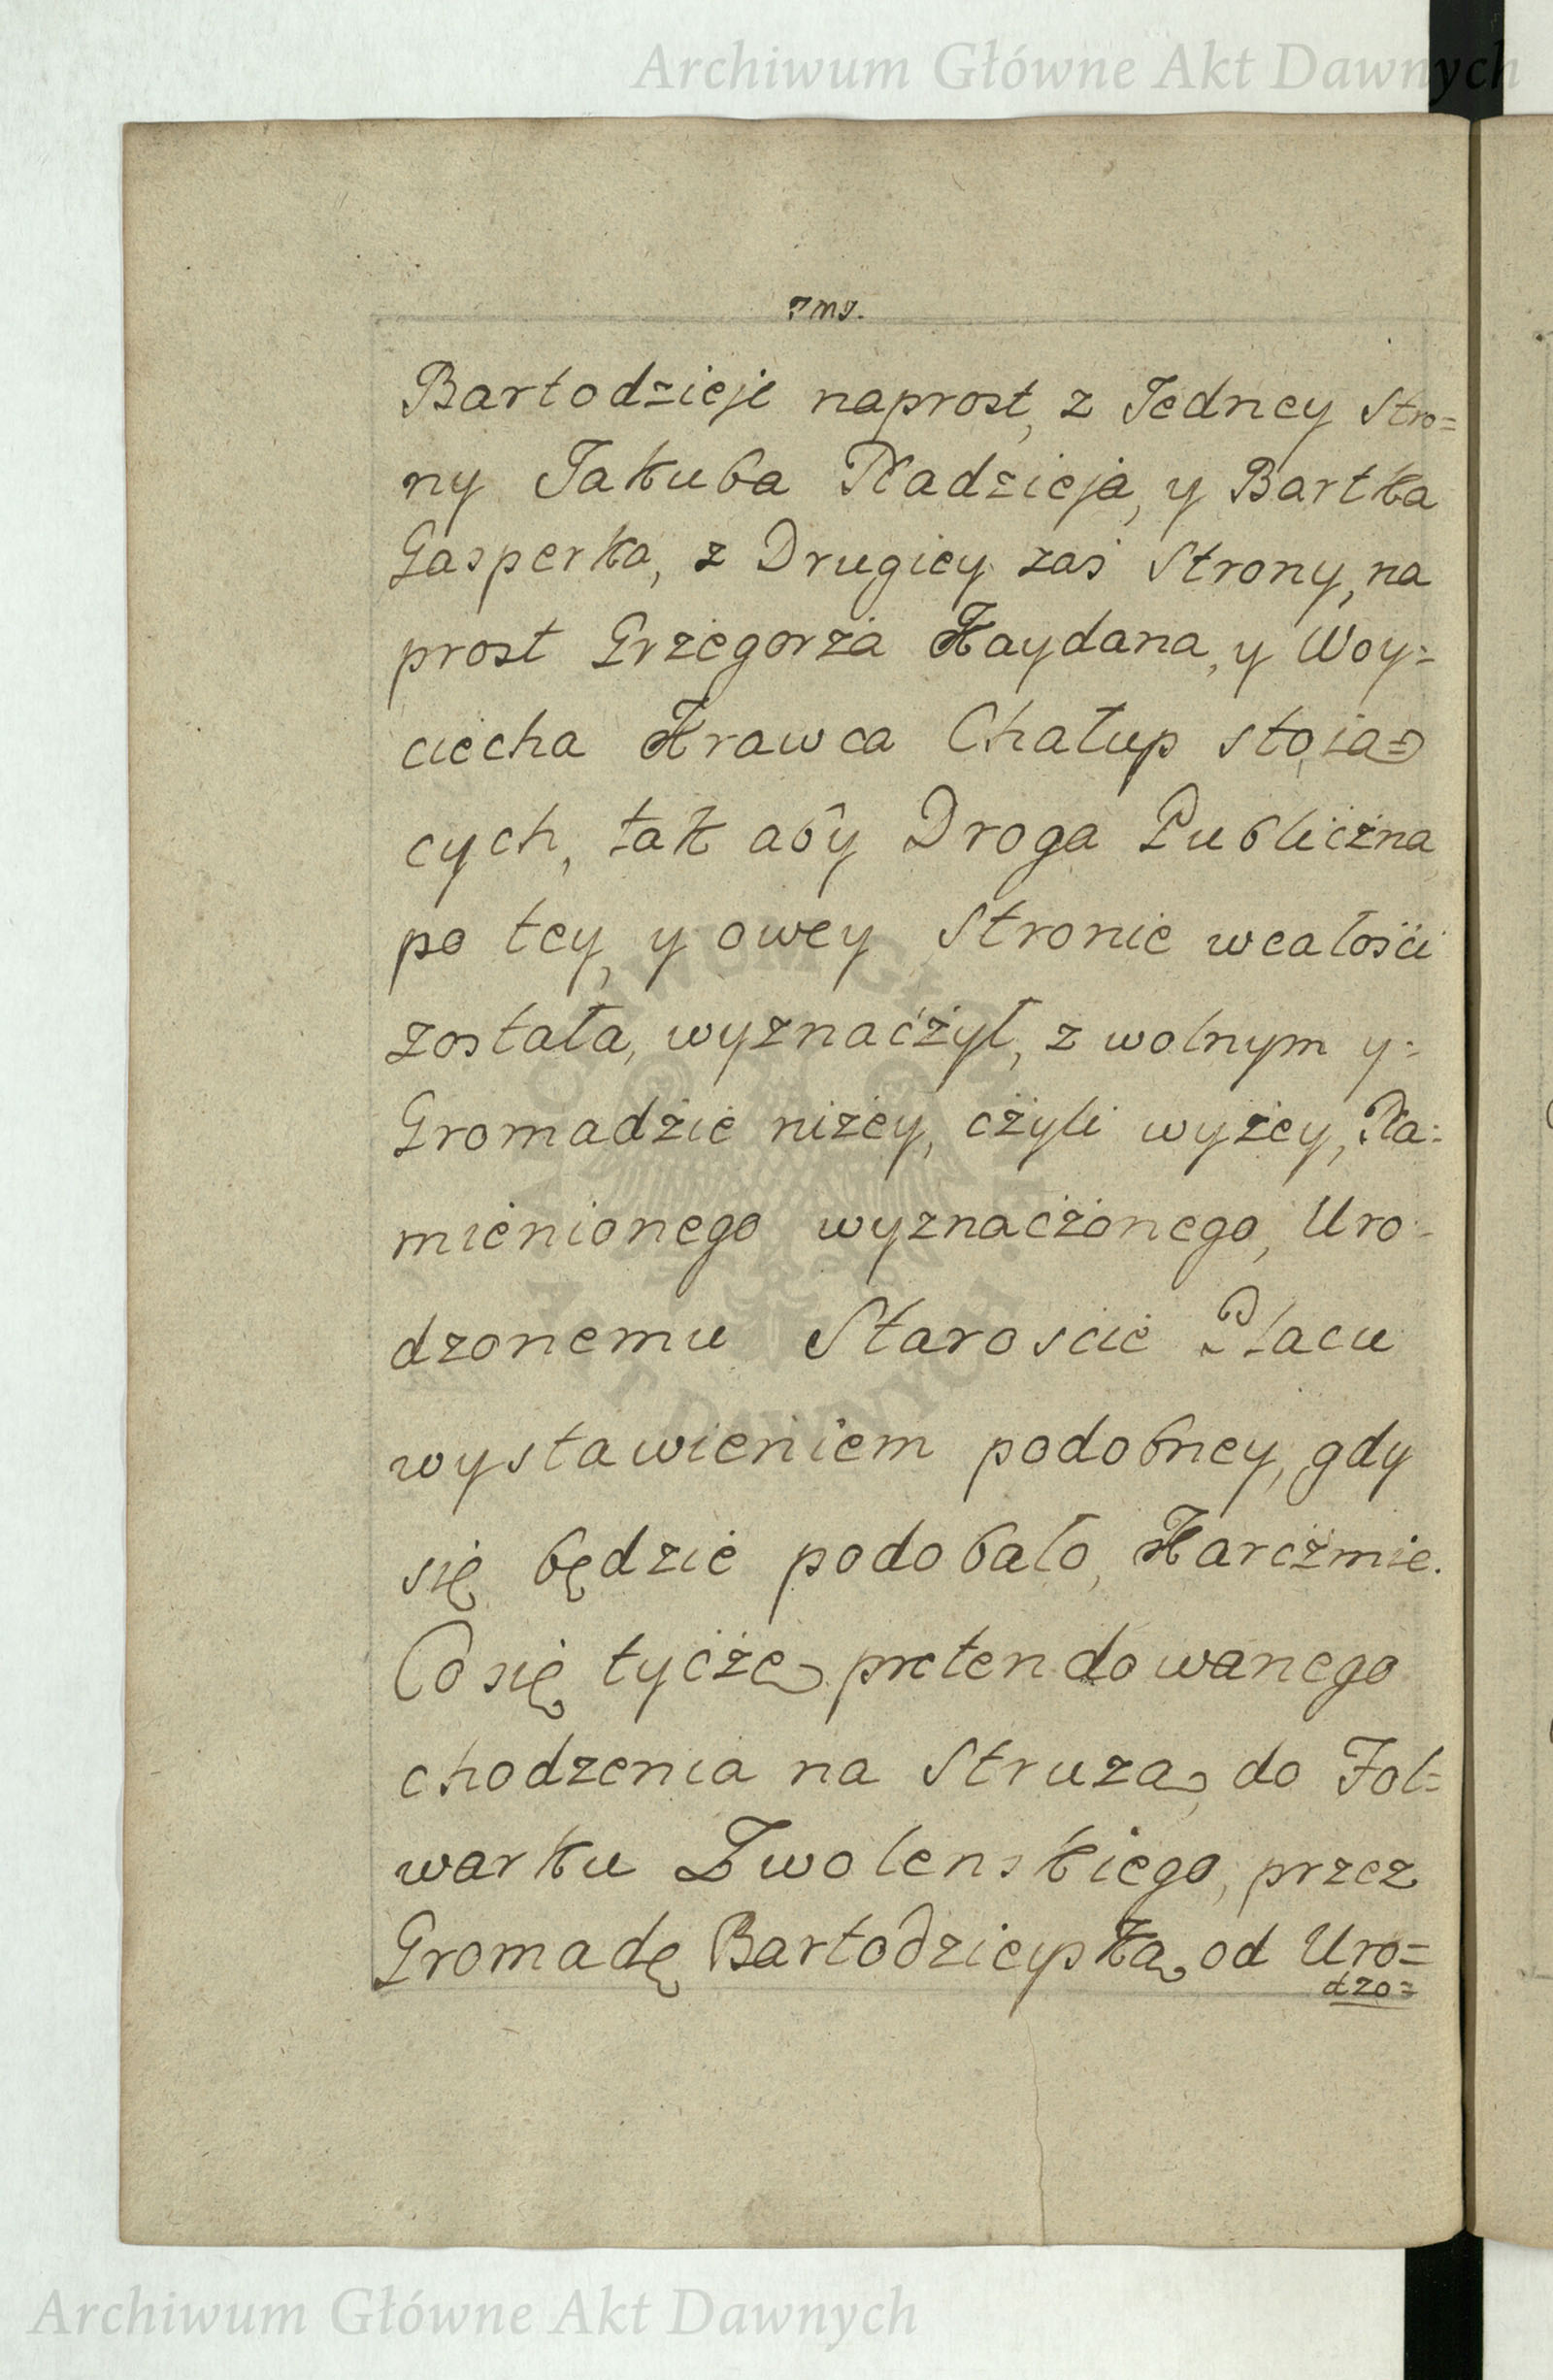 Archiwum Główne Akt Dawnych
Bartodzieje naprost, z Jedney Stro=
ny Jakuba Nadzieja, y Bartka
Gasperka, z Drugiey zaś Strony, na
prost Grzegorza Kaydana, y Woy=
ciecha Krawca Chałup stoią=
cych, tak aby Droga Publiczna
po tey, y owey Stronie wcałości
została, wyznaczył, z wolnym y=
Gromadzie niżey, czyli wyżey, Na=
mienionego wyznaczonego, Uro=
dzonemu Staroscie Placu
wystawieniem podobney, gdy
się będzie podobało, Karczmie.
Co się tycze pretendowanego
chodzenia na Strużą, do Fol=
warku Zwolenskiego, przez
Gromadę Bartodzieyską od Uro=
dzo=
ARCHIWUM GŁÓWNE AKT DAWNYCH
Archiwum Główne Akt Dawnych